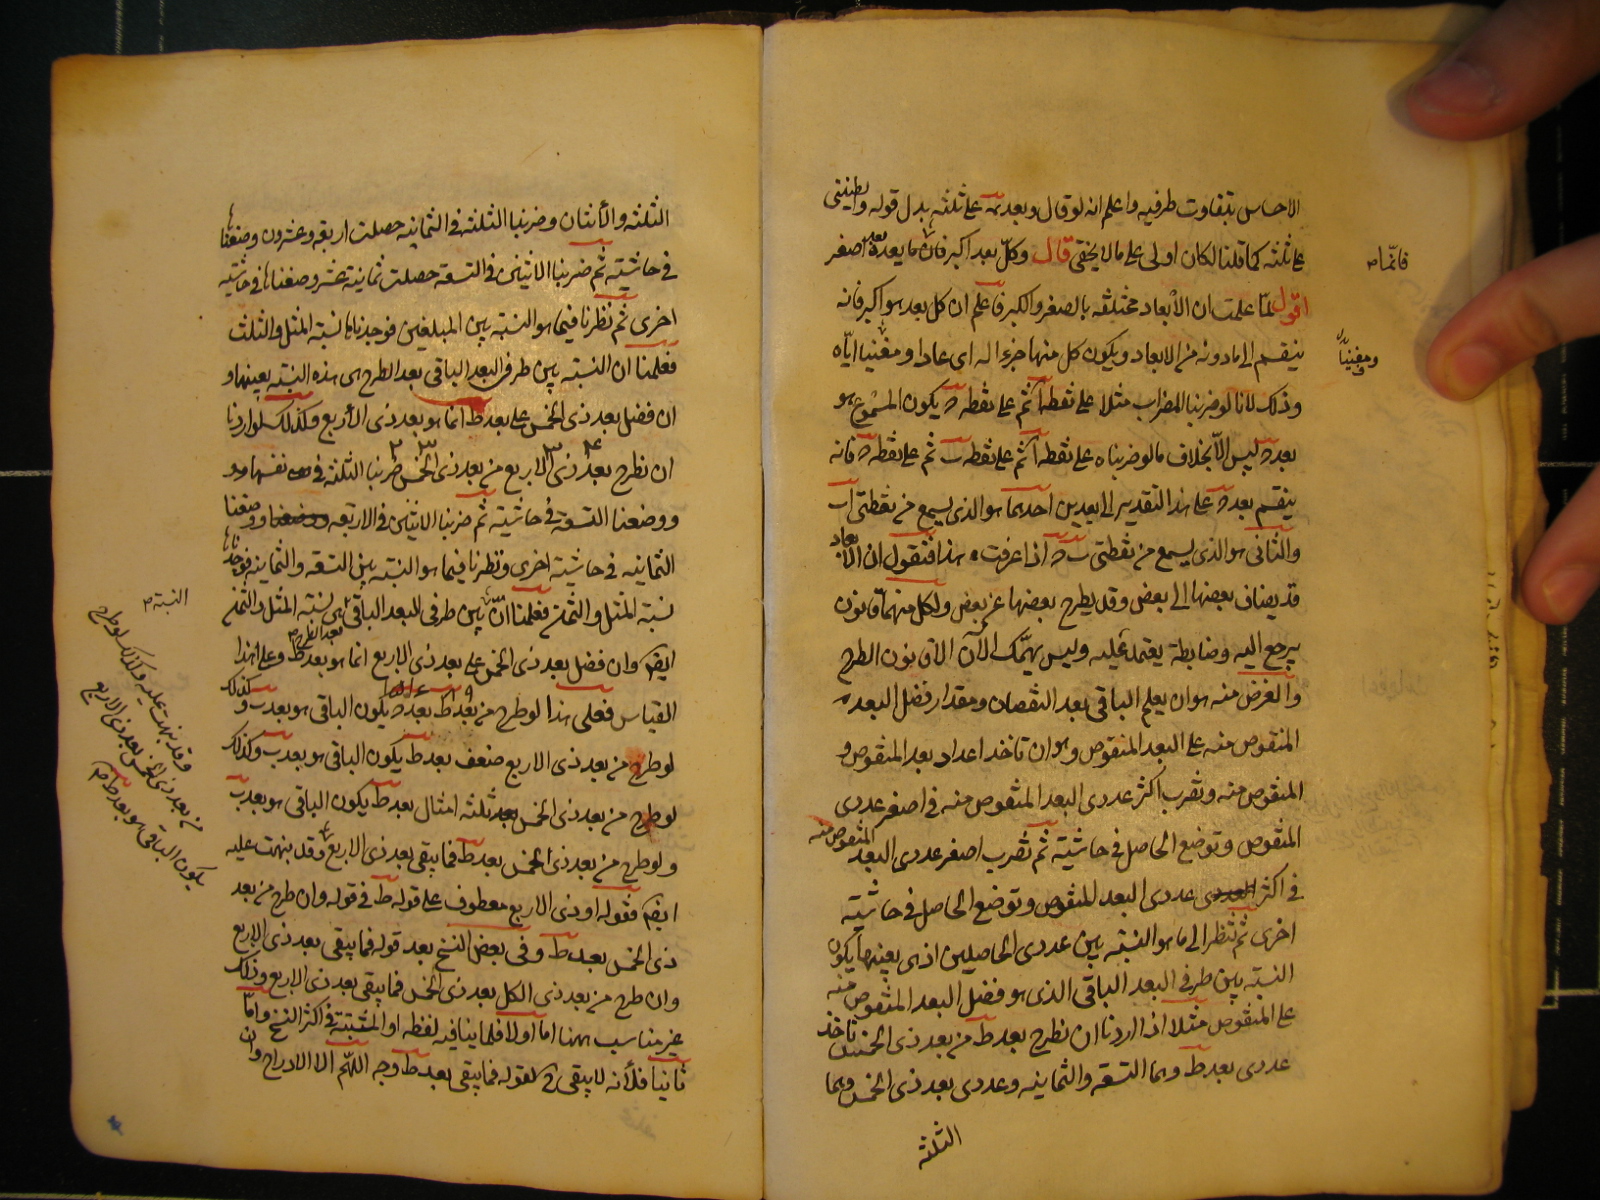 الاحساس بتفاوت طرفيه واعلم انه لو قال وبعد يه على ثلثه بدل قوله وطنينى
على ثلثه كما قلنا لكان اولى على ما لا يخفى قال وكل بعد اكبر فان ما يعده بعد اصغر
فانما ص
اقول لما علمت ان الأبعاد مختلفه بالصغر والكبر فاعلم ان كل بعد هو اكبر فانه
ينقسم الى ما دونه من الابعاد ويكون كل منها جزءا له اى عادا ومفنيا اياه
ومفنيا
وذلك لانا لو ضربنا للمضراب مثلا على نقطه ا ثم على نقطه ح يكون المسموع هو
بعد ا ح ليس الا بخلاف ما لو ضربناه على نقطه ا ثم على نقطه ب ثم على نقطه ح فانه
ينقسم بعد ا ح على هذا التقدير الى بعدين احدهما هو الذى يسمع من نقطتى ا ب
والثانى هو الذى يسمع من نقطتى ب ح اذا عرفت هذا فنقول ان الأبعاد
قد يضاف بعضها الى بعض وقد يطرح بعضها عن بعض ولكل منهما قانون
يرجع اليه وضابطة يعتمد عليه وليس يهمك الآن الا قانون الطرح
والغرض منه هو ان يعلم الباقى بعد النقصان ومقدار فضل البعد
المنقوص منه على البعد المنقوص وهو ان تاخذ اعداد بعد المنقوص و
المنقوص منه وتضرب اكثر عددى البعد المنقوص منه فى اصغر عددى
المنقوص وتوضع الحاصل فى حاشية ثم تضرب اصغر عددى البعد المنقوص منه
فى اكثر عددى البعد المنقوص وتوضع الحاصل فى حاشيته
اخرى ثم تنظر الى ما هو النسبة بين عددى الحاصلين اذ هى بعينها يكون
النسبة بين طرفى البعد الباقى الذى هو فضل البعد المنقوص منه
على المنقوص مثلا اذا اردنا ان نطرح بعد ط من بعد ذى الخمس تاخذ
عددى بعد ط وهما التسعه والثمانيه وعددى بعد ذى الخمس وهما
الثلثه
الثلثه والأثنتان وضربنا الثلثه فى الثمانيه حصلت اربعه وعشرون وضعناها
فى حاشيته ثم ضربنا الاثنين فى التسعة حصلت ثمانية عشر وضعناها فى حاشيته
اخرى ثم نظرنا فيما هو النسبة بين المبلغين فوجدناها نسبة المثل والثلث
فعلمنا ان النسبة بين طرفى البعد الباقى بعد الطرح هى هذه النسبة بعينها و
ان فضل بعد ذى الخمس على بعد ط انما هو بعد ذى الأربع وكذلك لو اردنا
ان نطرح بعد ذى الاربع من بعد ذى الخمس ضربنا الثلثة فى نفسها
ووضعنا التسعة فى حاشيته ثم ضربنا الاثنين فى الاربعه ووضعنا
الثمانيه فى حاشية اخرى ونظرنا فيما هو النسبة بين التسعة والثمانيه فوجدناها
نسبة المثل والثمن فعلمنا ان النسبة بين طرفى البعد الباقى بعد الطرح هى نسبة المثل والثمن
ايضا وان فضل بعد ذى الخمس على بعد ذى الاربع انما هو بعد ط وعلى هذا
القياس فعلى هذا لو طرح من بعد ط بعد ج يكون الباقى هو بعد ب وكذلك
لو طرح من بعد ذى الاربع ضعف بعد ط يكون الباقى هو بعد ب وكذلك
لو طرح من بعد ذى الخمس ثلثه امثال بعد ط يكون الباقى هو بعد ب
ولو طرح من بعد ذى الخمس بعد ط فما يبقى بعد ذى الاربع وقد نبهت عليه
ايضا فقوله او ذى الاربع معطوف على قوله ط فى قوله وان طرح من بعد
ذى الخمس بعد ط وفى بعض النسخ بعد قوله فما يبقى بعد ذى الاربع
وان طرح من بعد ذى الكل بعد ذى الخمس فما يبقى بعد ذى الاربع وذلك
غير مناسب ههنا اما اولا فلما ينافيه لفظه او المثبتة فى اكثر النسخ واما
ثانيا فلأنه لا يبقى ح لقوله فما يبقى بعد ط وجه اللهم الا الادراج وان
النسبة ص
وقد نبهت عليه وكذلك لو طرح
من بعد ذى الخمس بعد ذى الاربع
يكون الباقى هو بعد ط ص